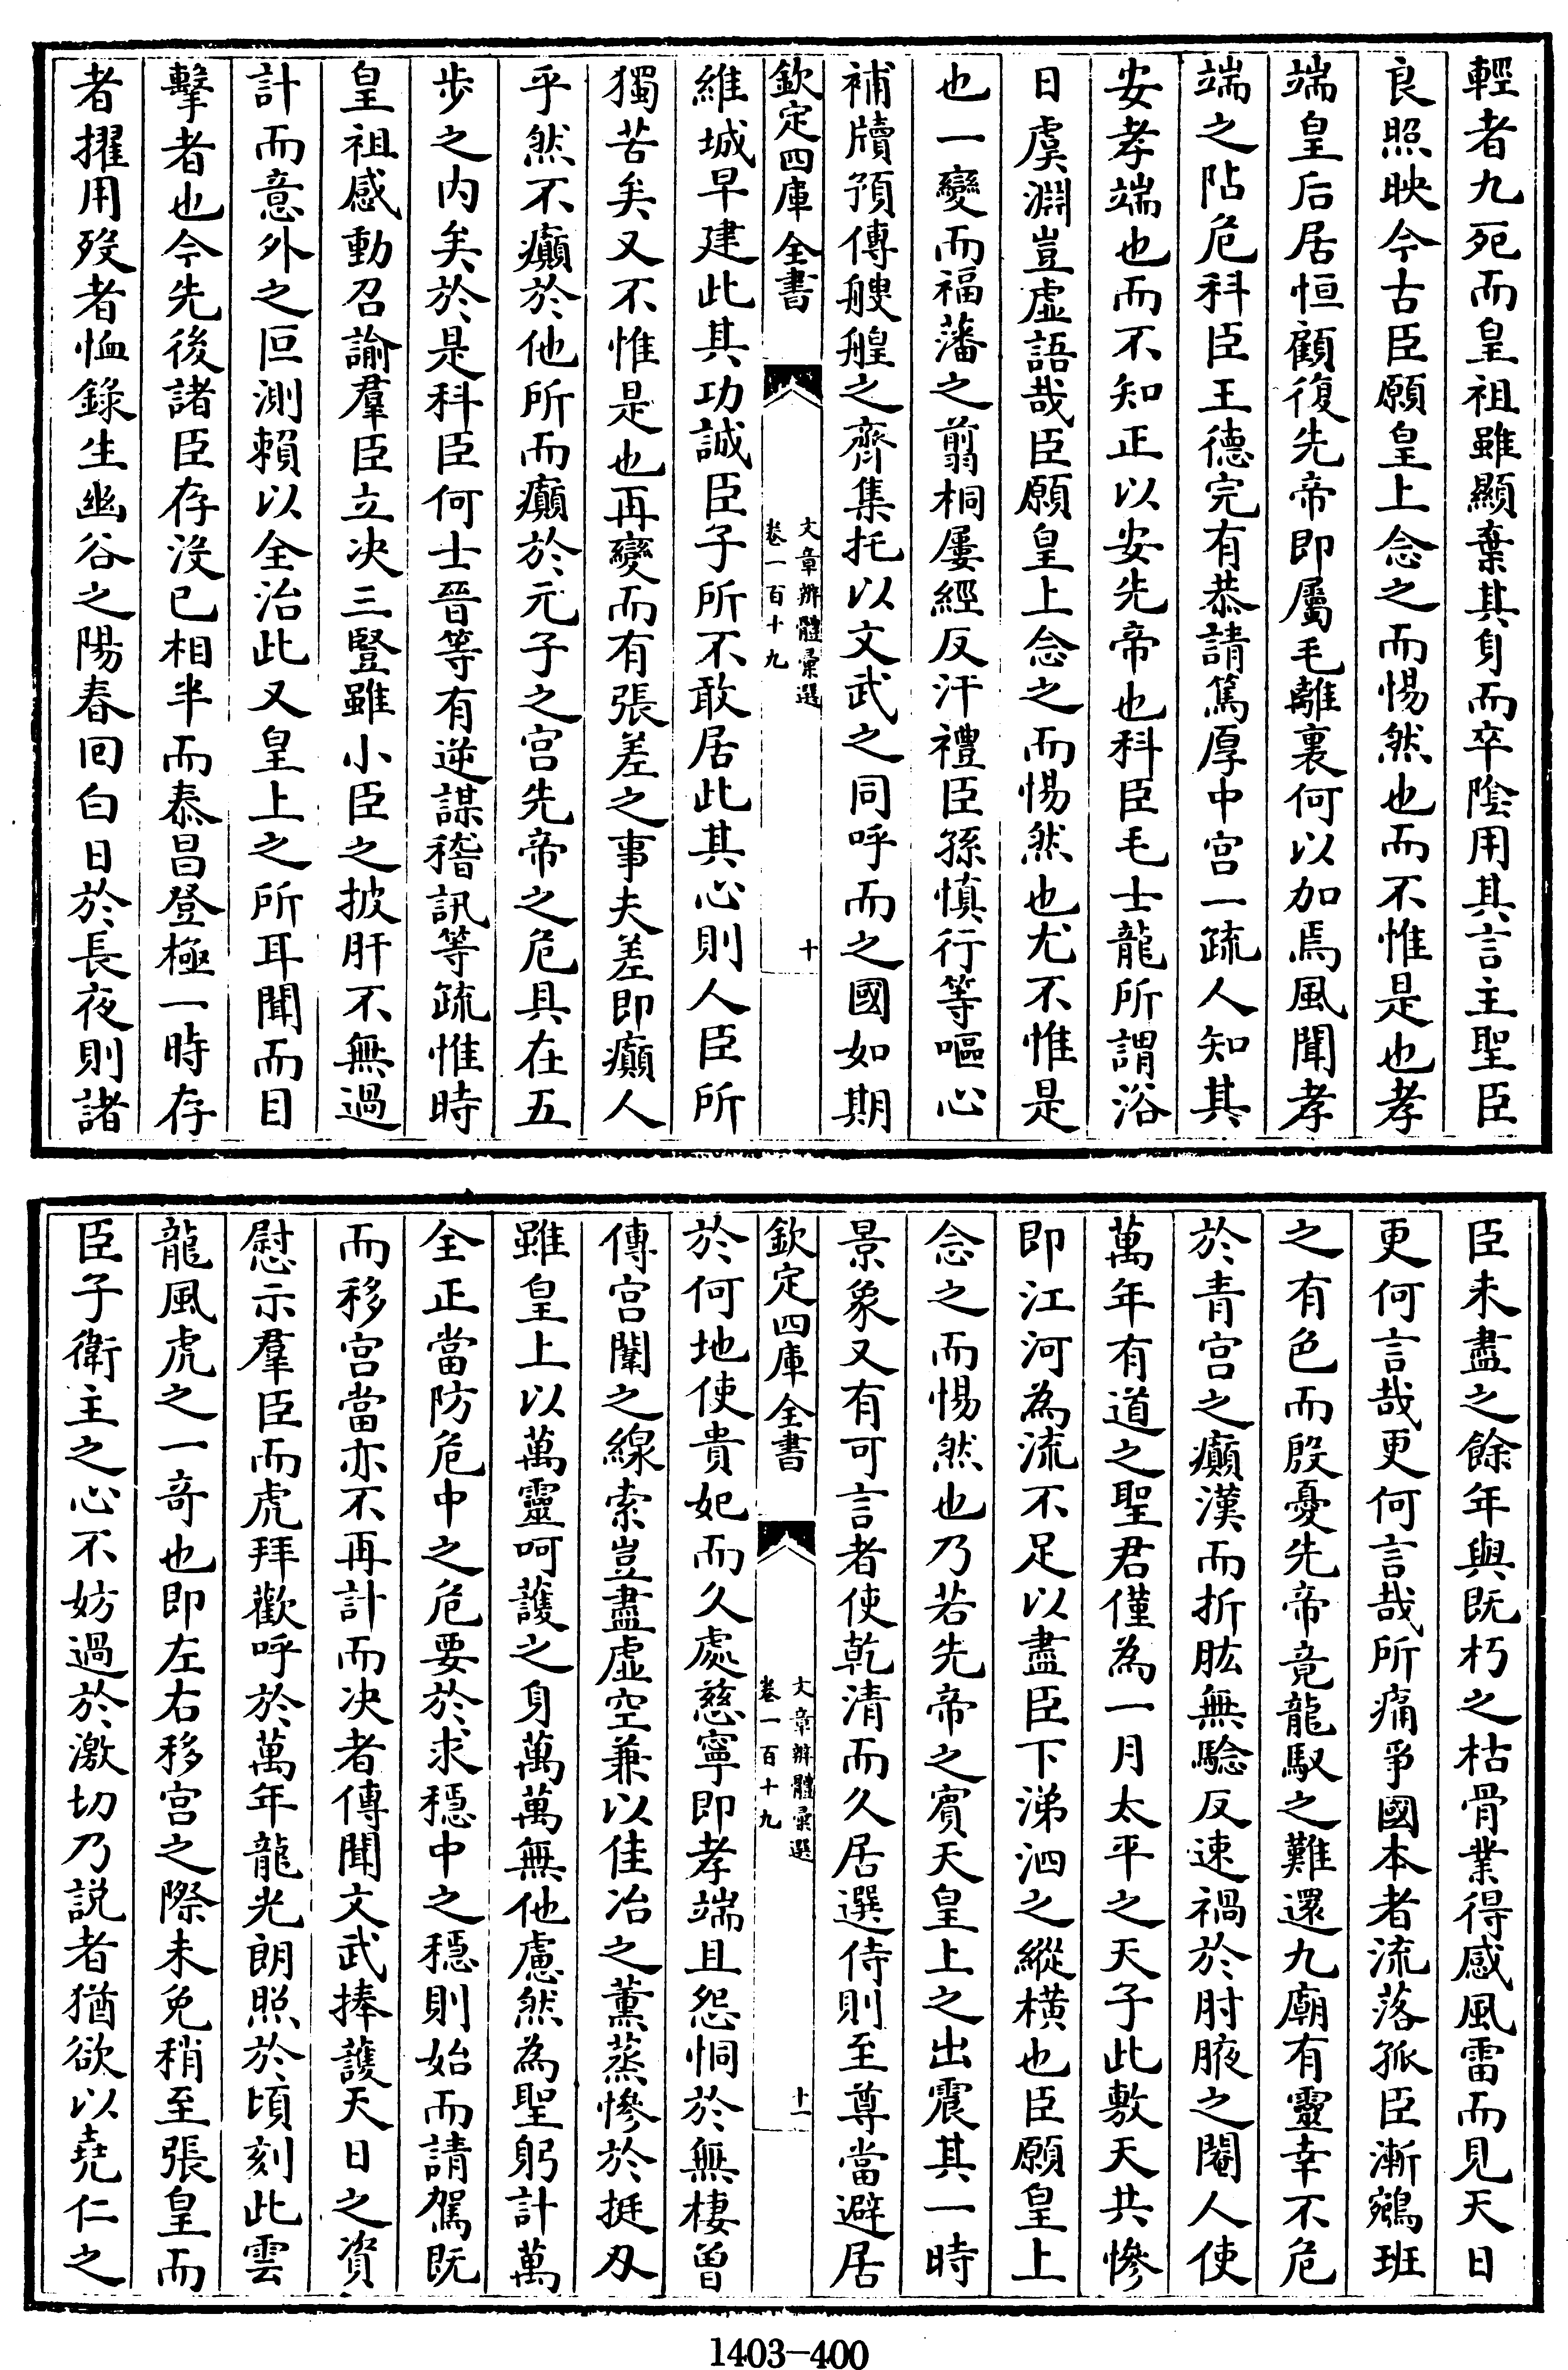 輕者九死而皇祖雖顯棄其身而卒陰用其言主聖臣
良照映今古臣願皇上念之而惕然也而不惟是也孝
端皇后居恒顧復先帝即屬毛離裏何以加焉風聞孝
端之阽危科臣王德完有恭請篤厚中宮一疏人知其
安孝端也而不知正以安先帝也科臣毛士龍所謂浴
日虞淵豈虛語哉臣願皇上念之而惕然也尤不惟是
也一變而福藩之翦桐屢經反汗禮臣孫慎行等嘔心
補牘預傳艘艎之齊集托以文武之同呼而之國如期
欽定四庫全書
文章辨體彙選
卷一百十九
十
維城早建此其功誠臣子所不敢居此其心則人臣所
獨苦矣又不惟是也再變而有張差之事夫差即癲人
乎然不癲於他所而癲於元子之宮先帝之危具在五
步之內矣於是科臣何士晉等有逆謀稽訊等疏惟時
皇祖感動召諭羣臣立決三豎雖小臣之披肝不無過
計而意外之叵測賴以全治此又皇上之所耳聞而目
擊者也今先後諸臣存沒已相半而泰昌登極一時存
者擢用歿者恤錄生幽谷之陽春回白日於長夜則諸
臣未盡之餘年與既朽之枯骨業得感風雷而見天日
更何言哉更何言哉所痛爭國本者流落孤臣漸鵷班
之有色而殷憂先帝竟龍馭之難還九廟有靈幸不危
於青宮之癲漢而折肱無驗反速禍於肘腋之閹人使
萬年有道之聖君僅為一月太平之天子此敷天共慘
即江河為流不足以盡臣下涕泗之縱橫也臣願皇上
念之而惕然也乃若先帝之賓天皇上之出震其一時
景象又有可言者使乾清而久居選侍則至尊當避居
欽定四庫全書
文章辨體彙選
卷一百十九
十一
於何地使貴妃而久處慈寧即孝端且怨恫於無棲曾
傳宮闈之線索豈盡虛空兼以佳冶之薰蒸慘於挺刃
雖皇上以萬靈呵護之身萬萬無他慮然為聖躬計萬
全正當防危中之危要於求穩中之穩則始而請駕既
而移宮當亦不再計而決者傳聞文武捧護天日之資
慰示羣臣而虎拜歡呼於萬年龍光朗照於頃刻此雲
龍風虎之一奇也即左右移宮之際未免稍至張皇而
臣子衛主之心不妨過於激切乃說者猶欲以堯仁之
1403-400